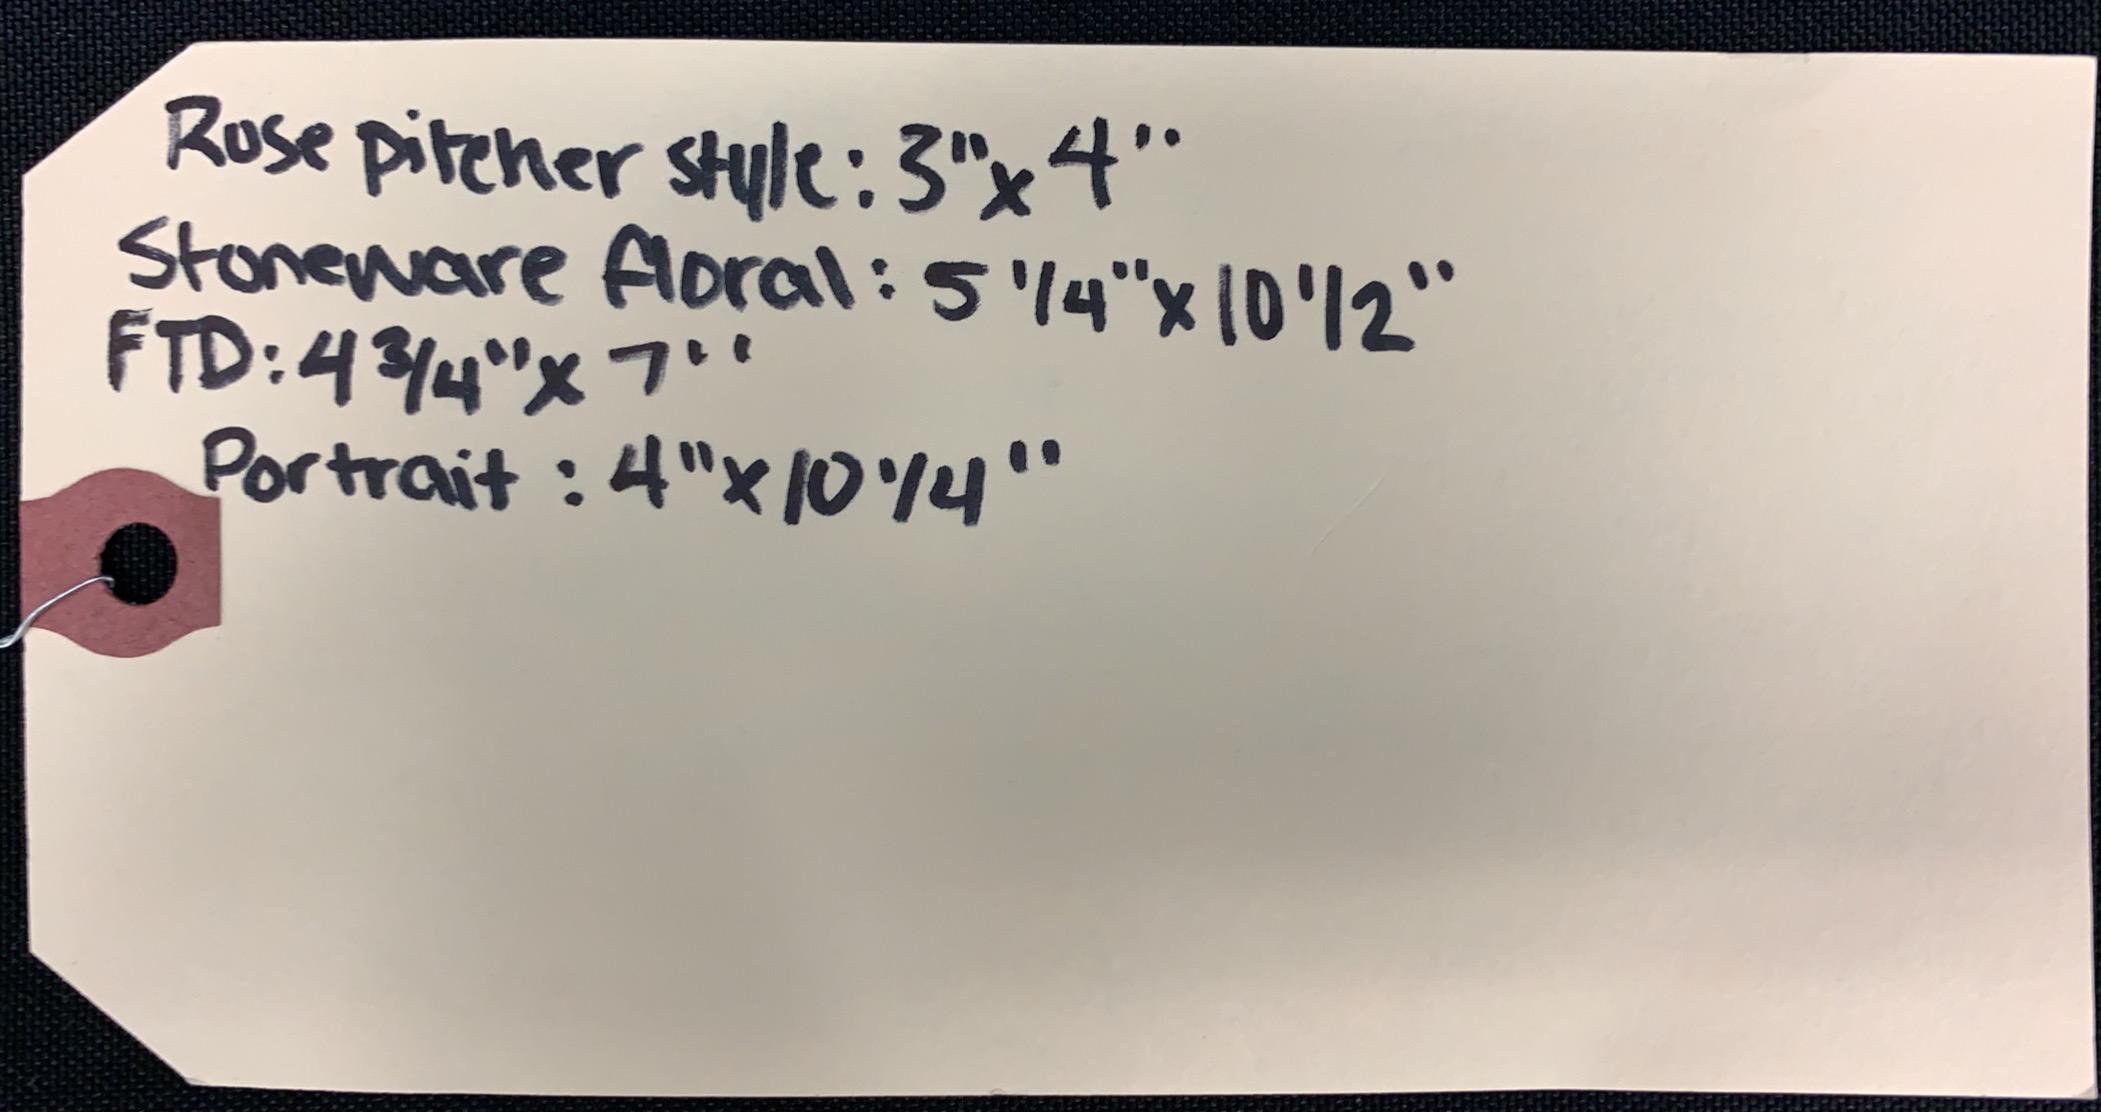 Rose pitcher style: 3"x 4"
Stoneware floral: 5 1/4"x 10 1/2"
FTD: 4 3/4"x 7"
Portrait: 4"x 10 1/4"